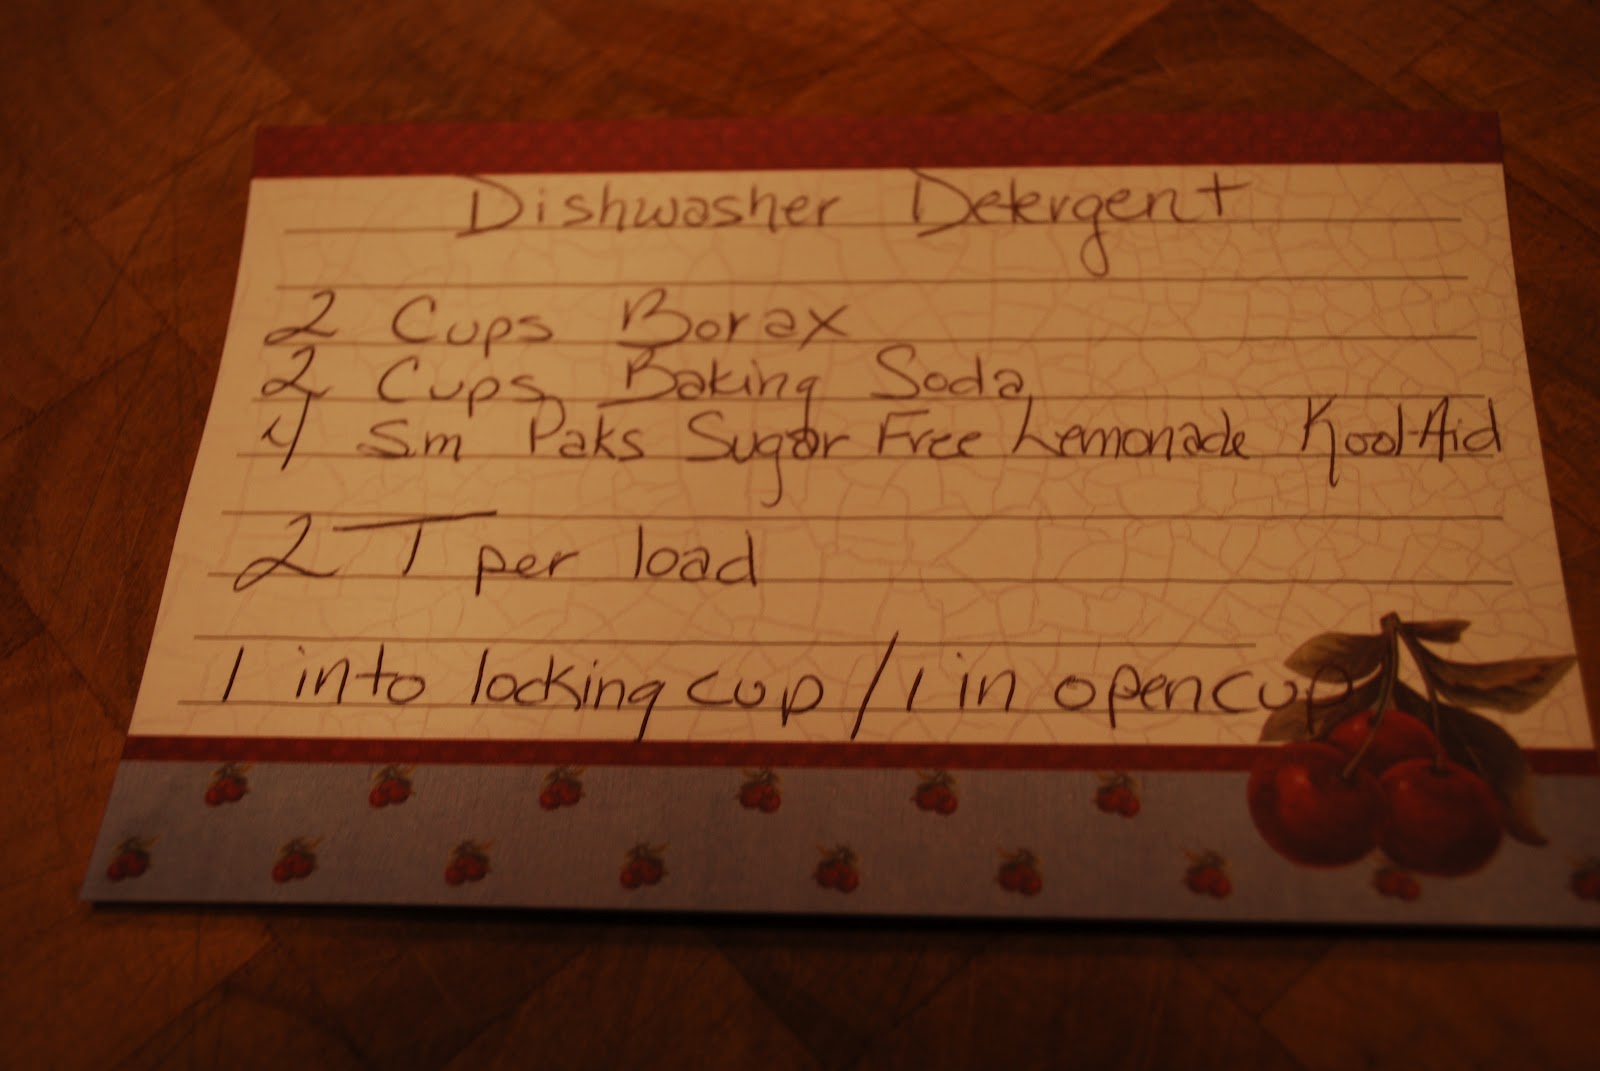 Dishwasher Detergent
2 Cups Borax
2 Cups Baking Soda
4 Sm Paks Sugar Free Lemonade Kool-Aid
2 T per load
1 into locking cup / 1 in open cup